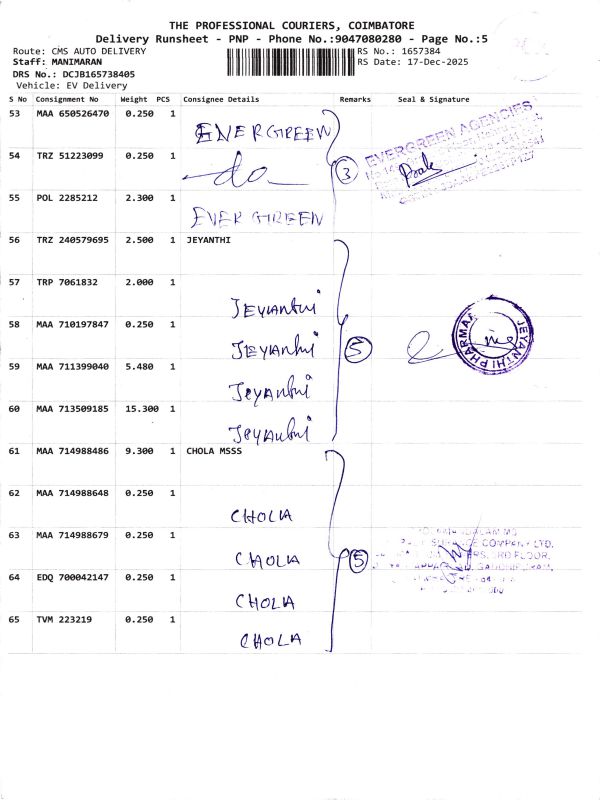 THE PROFESSIONAL COURIERS, COIMBATORE
Delivery Runsheet - PNP - Phone No.:9047080280 - Page No.:5
Route: CMS AUTO DELIVERY
RS No.: 1657384
Staff: MANIMARAN
RS Date: 17-Dec-2025
DRS No.: DCJB165738405
Vehicle: EV Delivery
S No Consignment No Weight PCS Consignee Details Remarks Seal & Signature
53 MAA 650526470 0.250 1
EVERGREEN
EVERGREEN AGENCIES
54 TRZ 51223099 0.250 1
do
3
55 POL 2285212 2.300 1
EVERGREEN
56 TRZ 240579695 2.500 1 JEYANTHI
57 TRP 7061832 2.000 1
JEYANTHI
58 MAA 710197847 0.250 1
JEYANTHI
5
JEYANTHI PHARMA
59 MAA 711399040 5.480 1
JEYANTHI
60 MAA 713509185 15.300 1
JEYANTHI
61 MAA 714988486 9.300 1 CHOLA MSSS
62 MAA 714988648 0.250 1
CHOLA
63 MAA 714988679 0.250 1
CHOLA
5
COMPANY LTD.
3RD FLOOR,
64 EDQ 700042147 0.250 1
CHOLA
65 TVM 223219 0.250 1
CHOLA